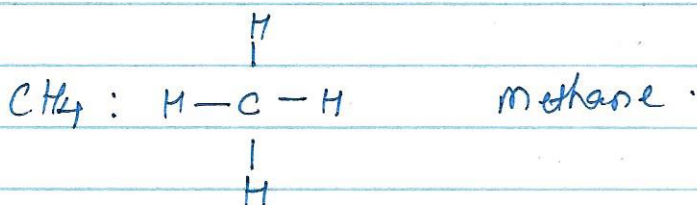 H
|
CH4 : H—C—H Methane.
|
H